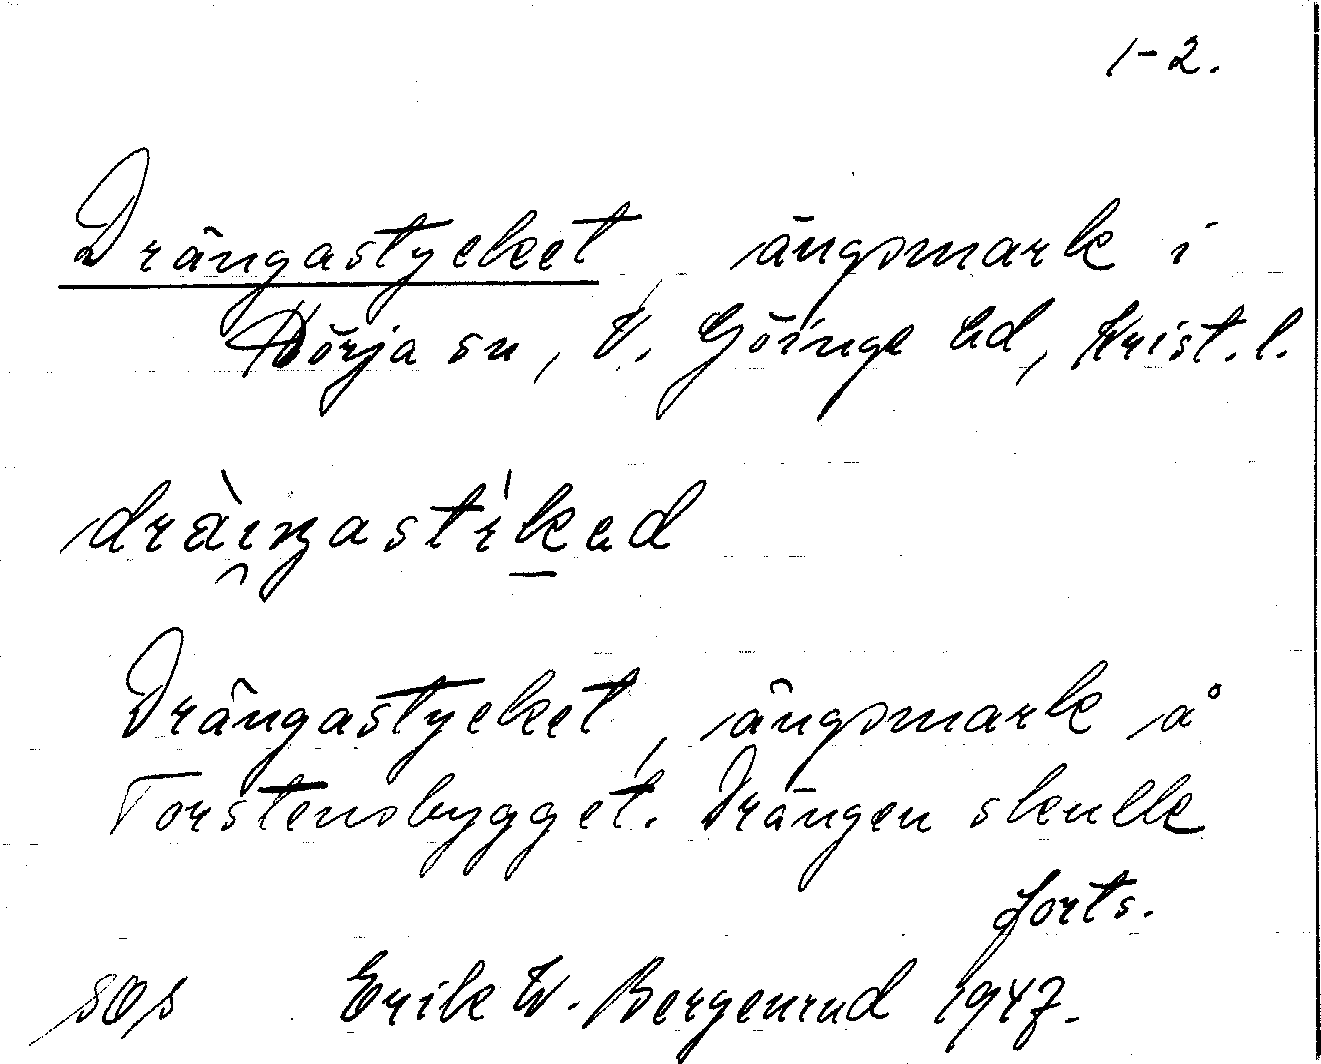 1-2.
Drängastycket, ängsmark i
Nörja sn, V. Göinge hd, Krist. l.
Drängastycket, ängsmark å
Torstensbygget. Drängen skulle
forts.
SOS Erik W. Bergenrud 1947.